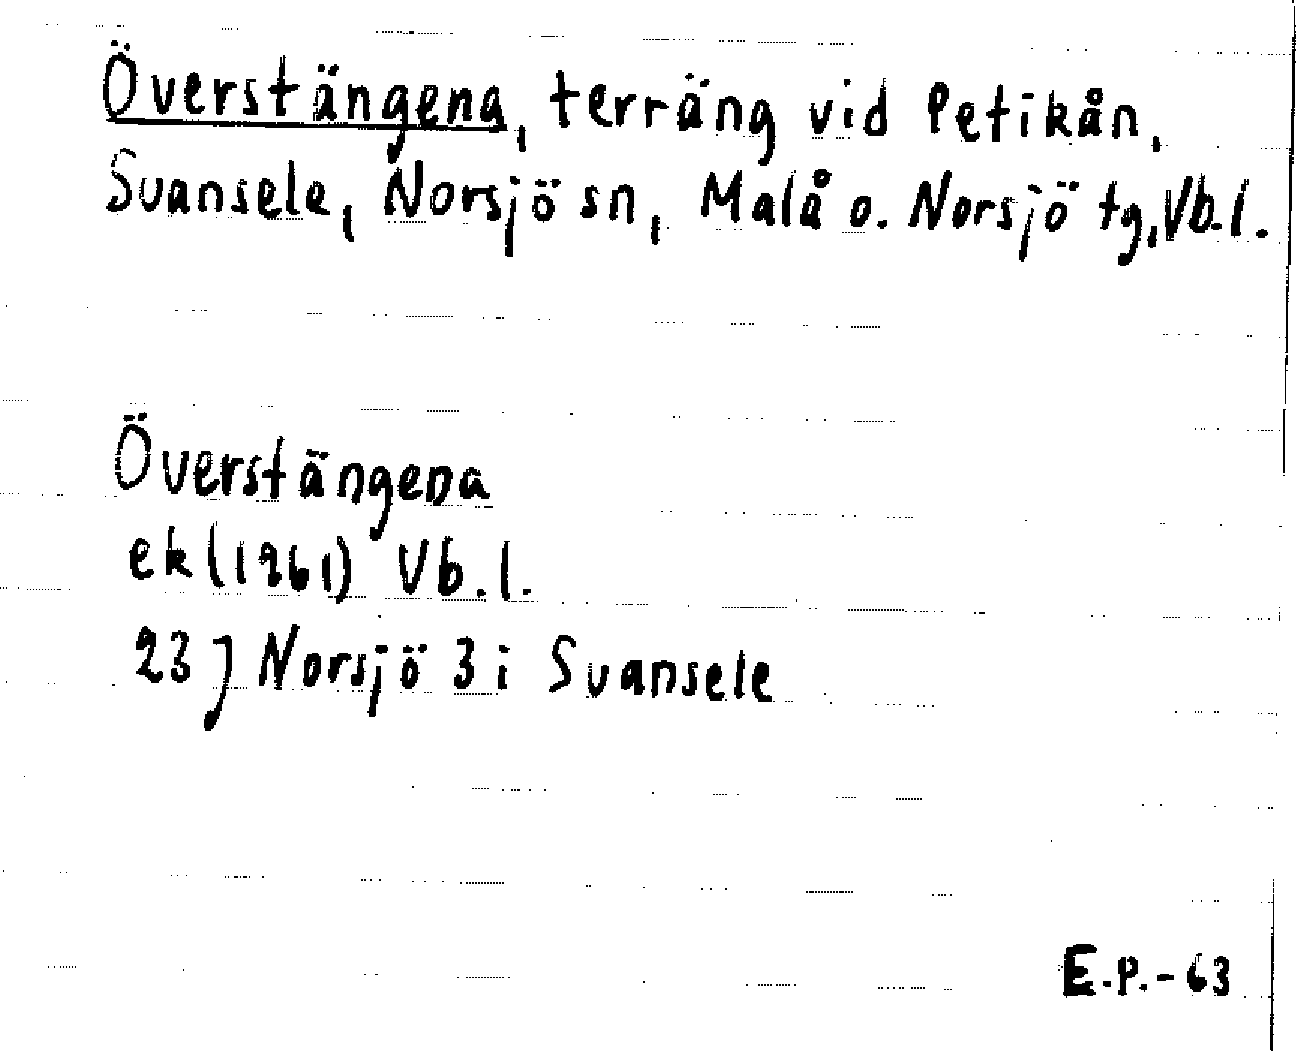 Överstängena, terräng vid Petikån,
Svansele, Norsjö sn, Malå o. Norsjö tg, Vb.l.
Överstängena
ek (1961) Vb.l.
23 J Norsjö 3 i Svansele
E.P.-63